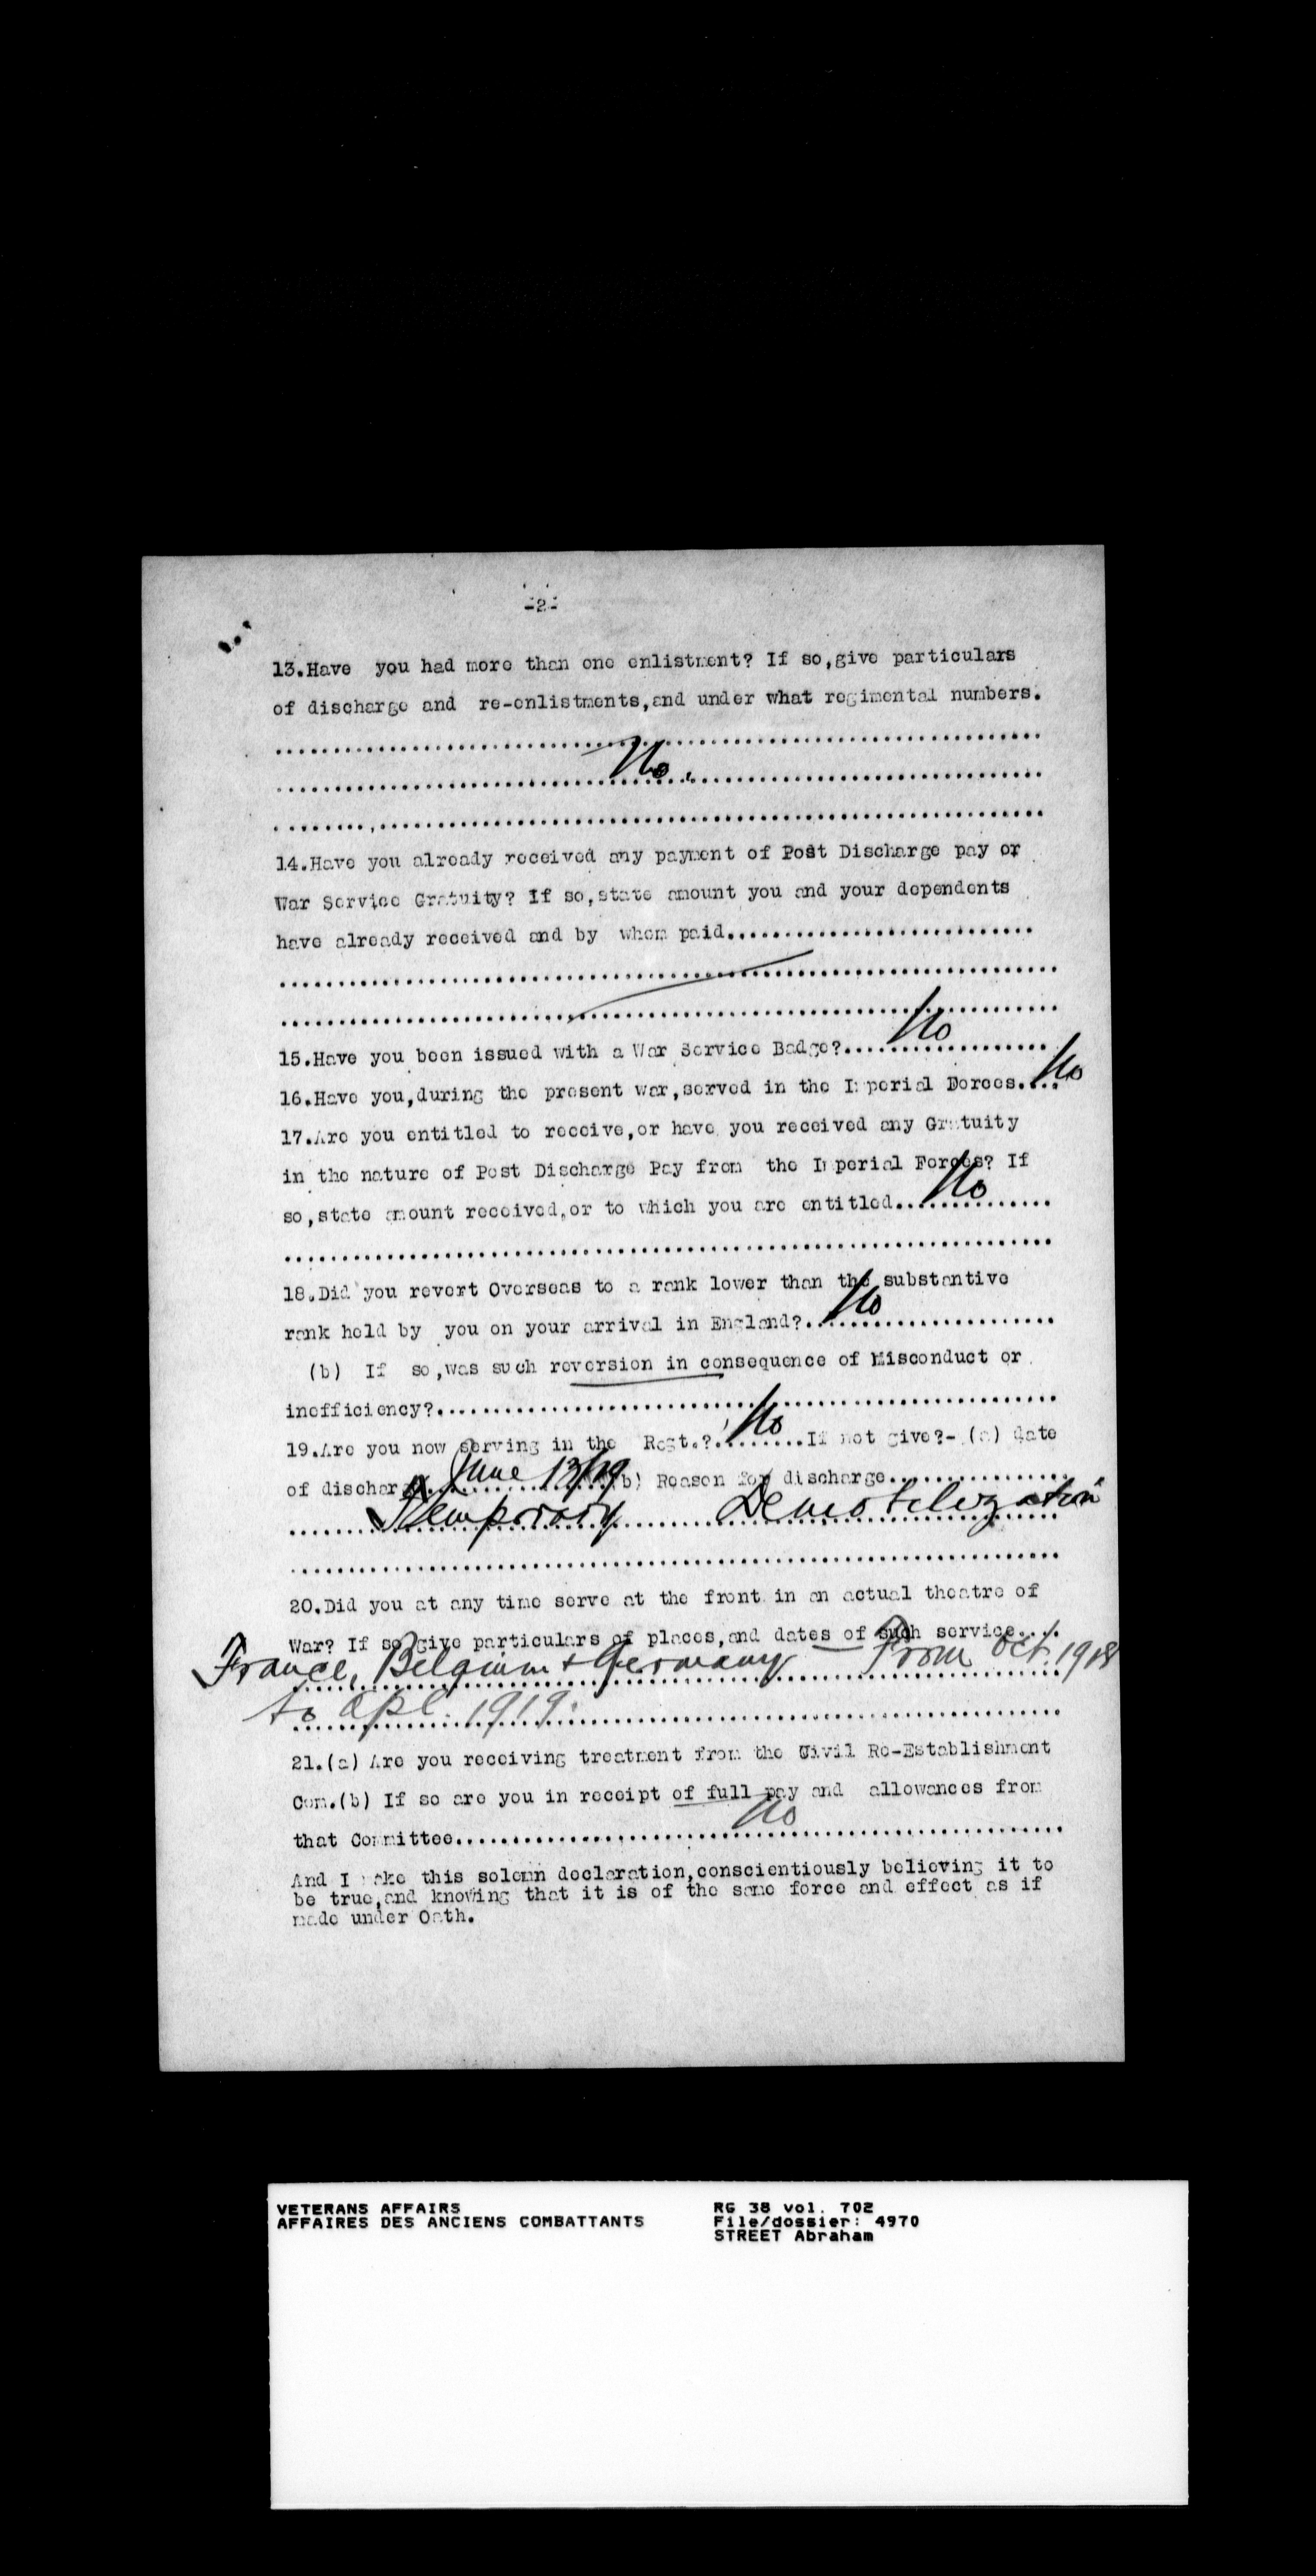 -2-
13.Have you had more than one enlistment? If so,give particulars
of discharge and re-enlistments,and under what regimental numbers.
No.
14.Have you already received any payment of Post Discharge pay or
War Service Gratuity? If so,state amount you and your dependents
have already received and by whom paid...........................
15.Have you been issued with a War Service Badge?.... No
16.Have you,during the present war,served in the Imperial Forces.... No
17.Are you entitled to receive,or have you received any Gratuity
in the nature of Post Discharge Pay from the Imperial Forces? If
so,state amount received,or to which you are entitled.... No
18.Did you revert Overseas to a rank lower than the substantive
rank held by you on your arrival in England?.... No
(b) If so,was such reversion in consequence of Misconduct or
inefficiency?....................................................
19.Are you now serving in the Regt.?.... No ....If not give?-(a) date
of discharge.... June 13/19 (b) Reason for discharge................
Demobilization
20.Did you at any time serve at the front in an actual theatre of
War? If so give particulars of places,and dates of such service....
France, Belgium & Germany — From Oct. 1918
to Apl. 1919.
21.(a) Are you receiving treatment from the Civil Re-Establishment
Com.(b) If so are you in receipt of full pay and allowances from
that Committee.... No
And I make this solemn declaration,conscientiously believing it to
be true,and knowing that it is of the same force and effect as if
made under Oath.
VETERANS AFFAIRS RG 38 vol. 702
AFFAIRES DES ANCIENS COMBATTANTS File/dossier: 4970
STREET Abraham